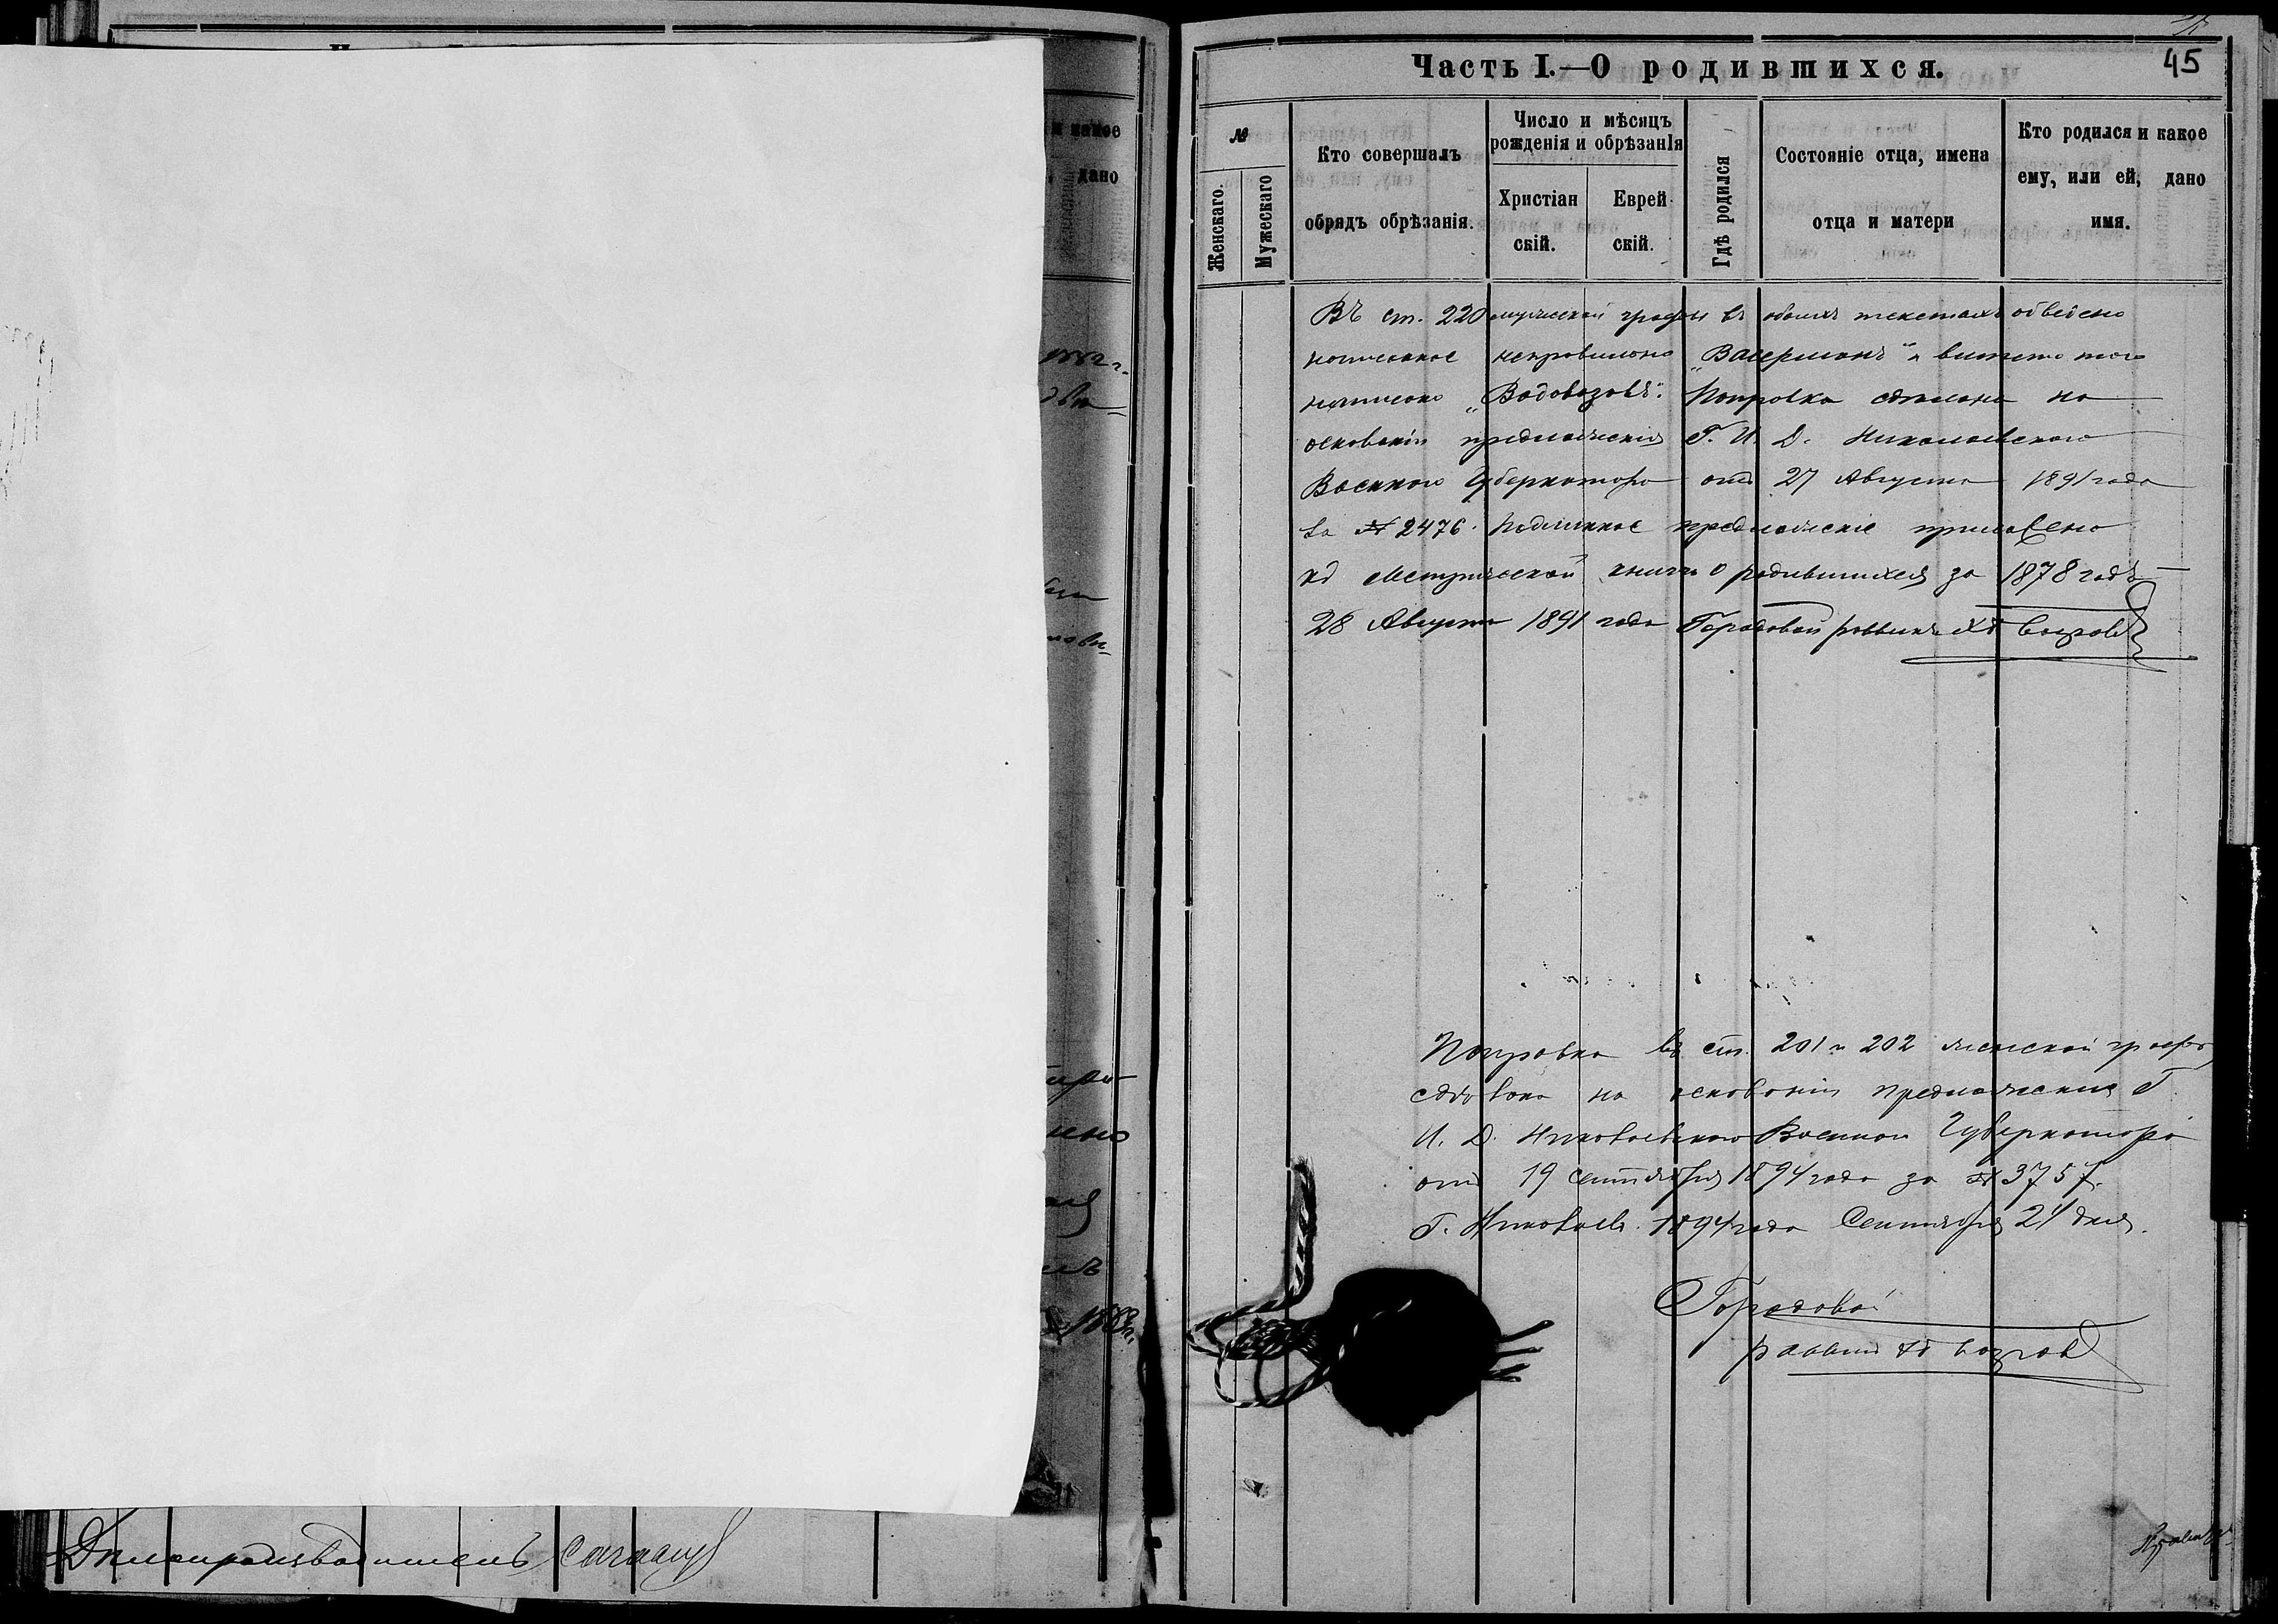 Часть I.—О родившихся.
45
№
Женскаго.
Мужескаго
Кто совершалъ
обрядъ обрѣзанія.
Число и мѣсяцъ
рожденія и обрѣзанія
Христіан
скій.
Еврей
скій.
Гдѣ родился
Состояніе отца, имена
отца и матери
Кто родился и какое
ему, или ей, дано
имя.
Въ ст. 220 мужеской графы въ обоихъ текстахъ обведено
написанное неправильно „Васерманъ" и вместо того
написано „Водовозовъ". Поправка сделана на
основаніи предложенія Г. И. Д. Николаевскаго
Военнаго Губернатора отъ 27 Августа 1891 года
за № 2476. Подлинное предложеніе приложено
къ Метрической книге о родившихся за 1878 годъ
28 Августа 1891 года Городовой раввинъ
Поправка въ ст. 201 и 202 женской графы
сделана на основаніи предложенія Г.
И. Д. Николаевскаго Военнаго Губернатора
отъ 19 сентября 1894 года за № 3757.
Г. Николаевъ. 1894 года Сентября 21 дня.
Городовой
раввинъ
и какое
дано
Делопроизводитель